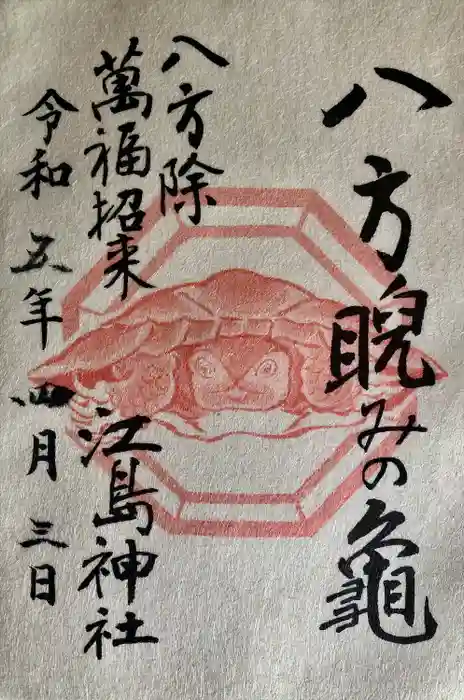 八方睨みの亀
八方除
萬福招来
江島神社
令和五年四月三日